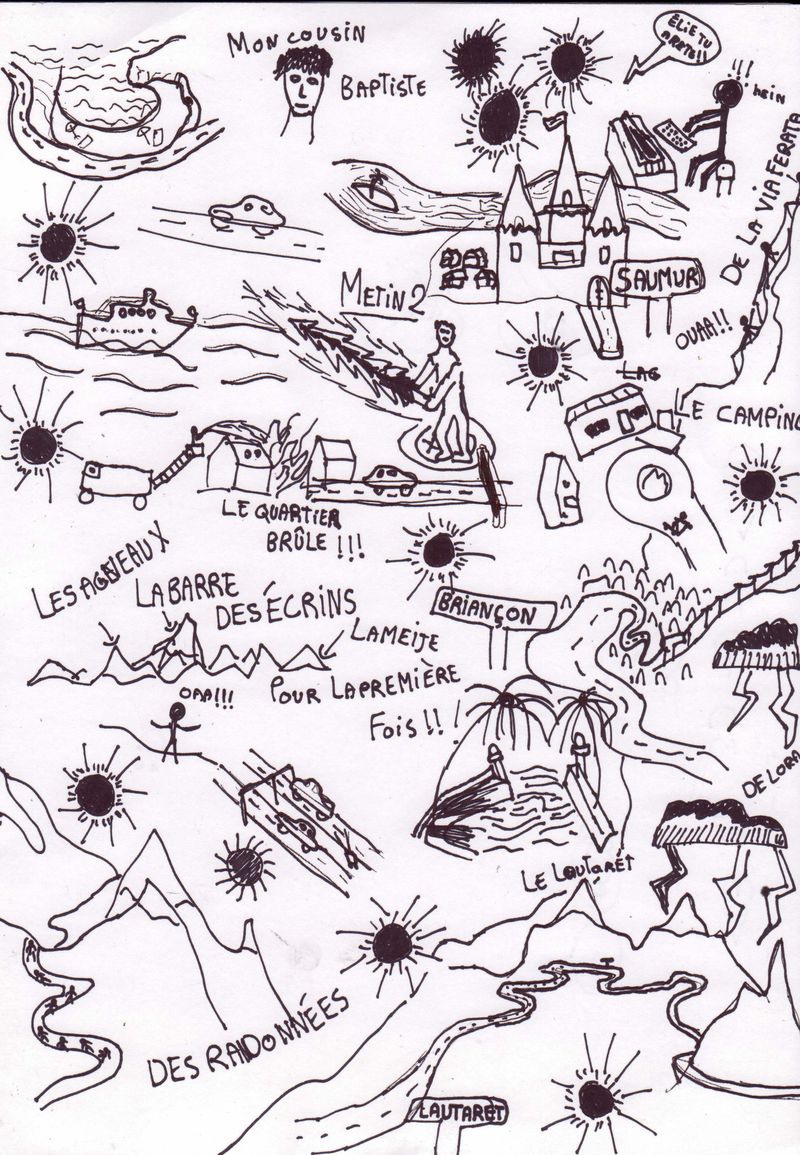 MON COUSIN
BAPTISTE
ÉLIE TU
ARETE!!
!!!
hEiN
DE LA VIA FERATA
SAUMUR
METIN2
OUAA!!
LAC
LE CAMPING
LE QUARTIER
BRÛLE !!!
LES AGNEAUX
LA BARRE
DES ÉCRINS
LA MEIJE
BRIANÇON
POUR LA PREMIÈRE
FOIS !! !
OAA!!!
DE LORA
LE LAUTARET
DES RANDONNÉES
LAUTARET